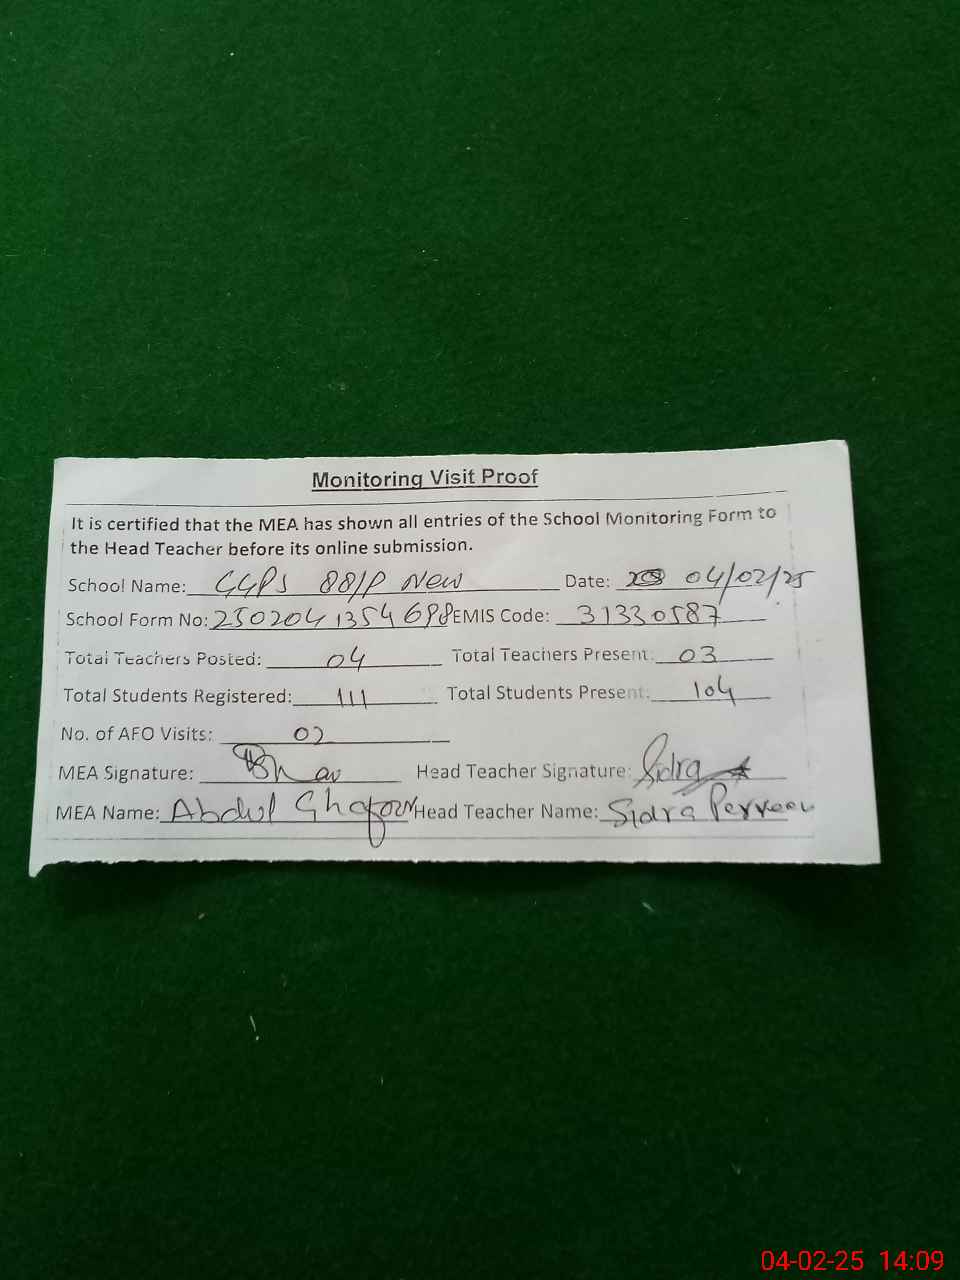 Monitoring Visit Proof
It is certified that the MEA has shown all entries of the School Monitoring Form to
the Head Teacher before its online submission.
School Name: GGPS 88/P New Date: 04/02/25
School Form No: 2502041354688 EMIS Code: 31330587
Total Teachers Posted: 04 Total Teachers Present: 03
Total Students Registered: 111 Total Students Present: 104
No. of AFO Visits: 02
MEA Signature: Head Teacher Signature: Sidra
MEA Name: Abdul Ghafoor Head Teacher Name: Sidra Perveen
04-02-25 14:09